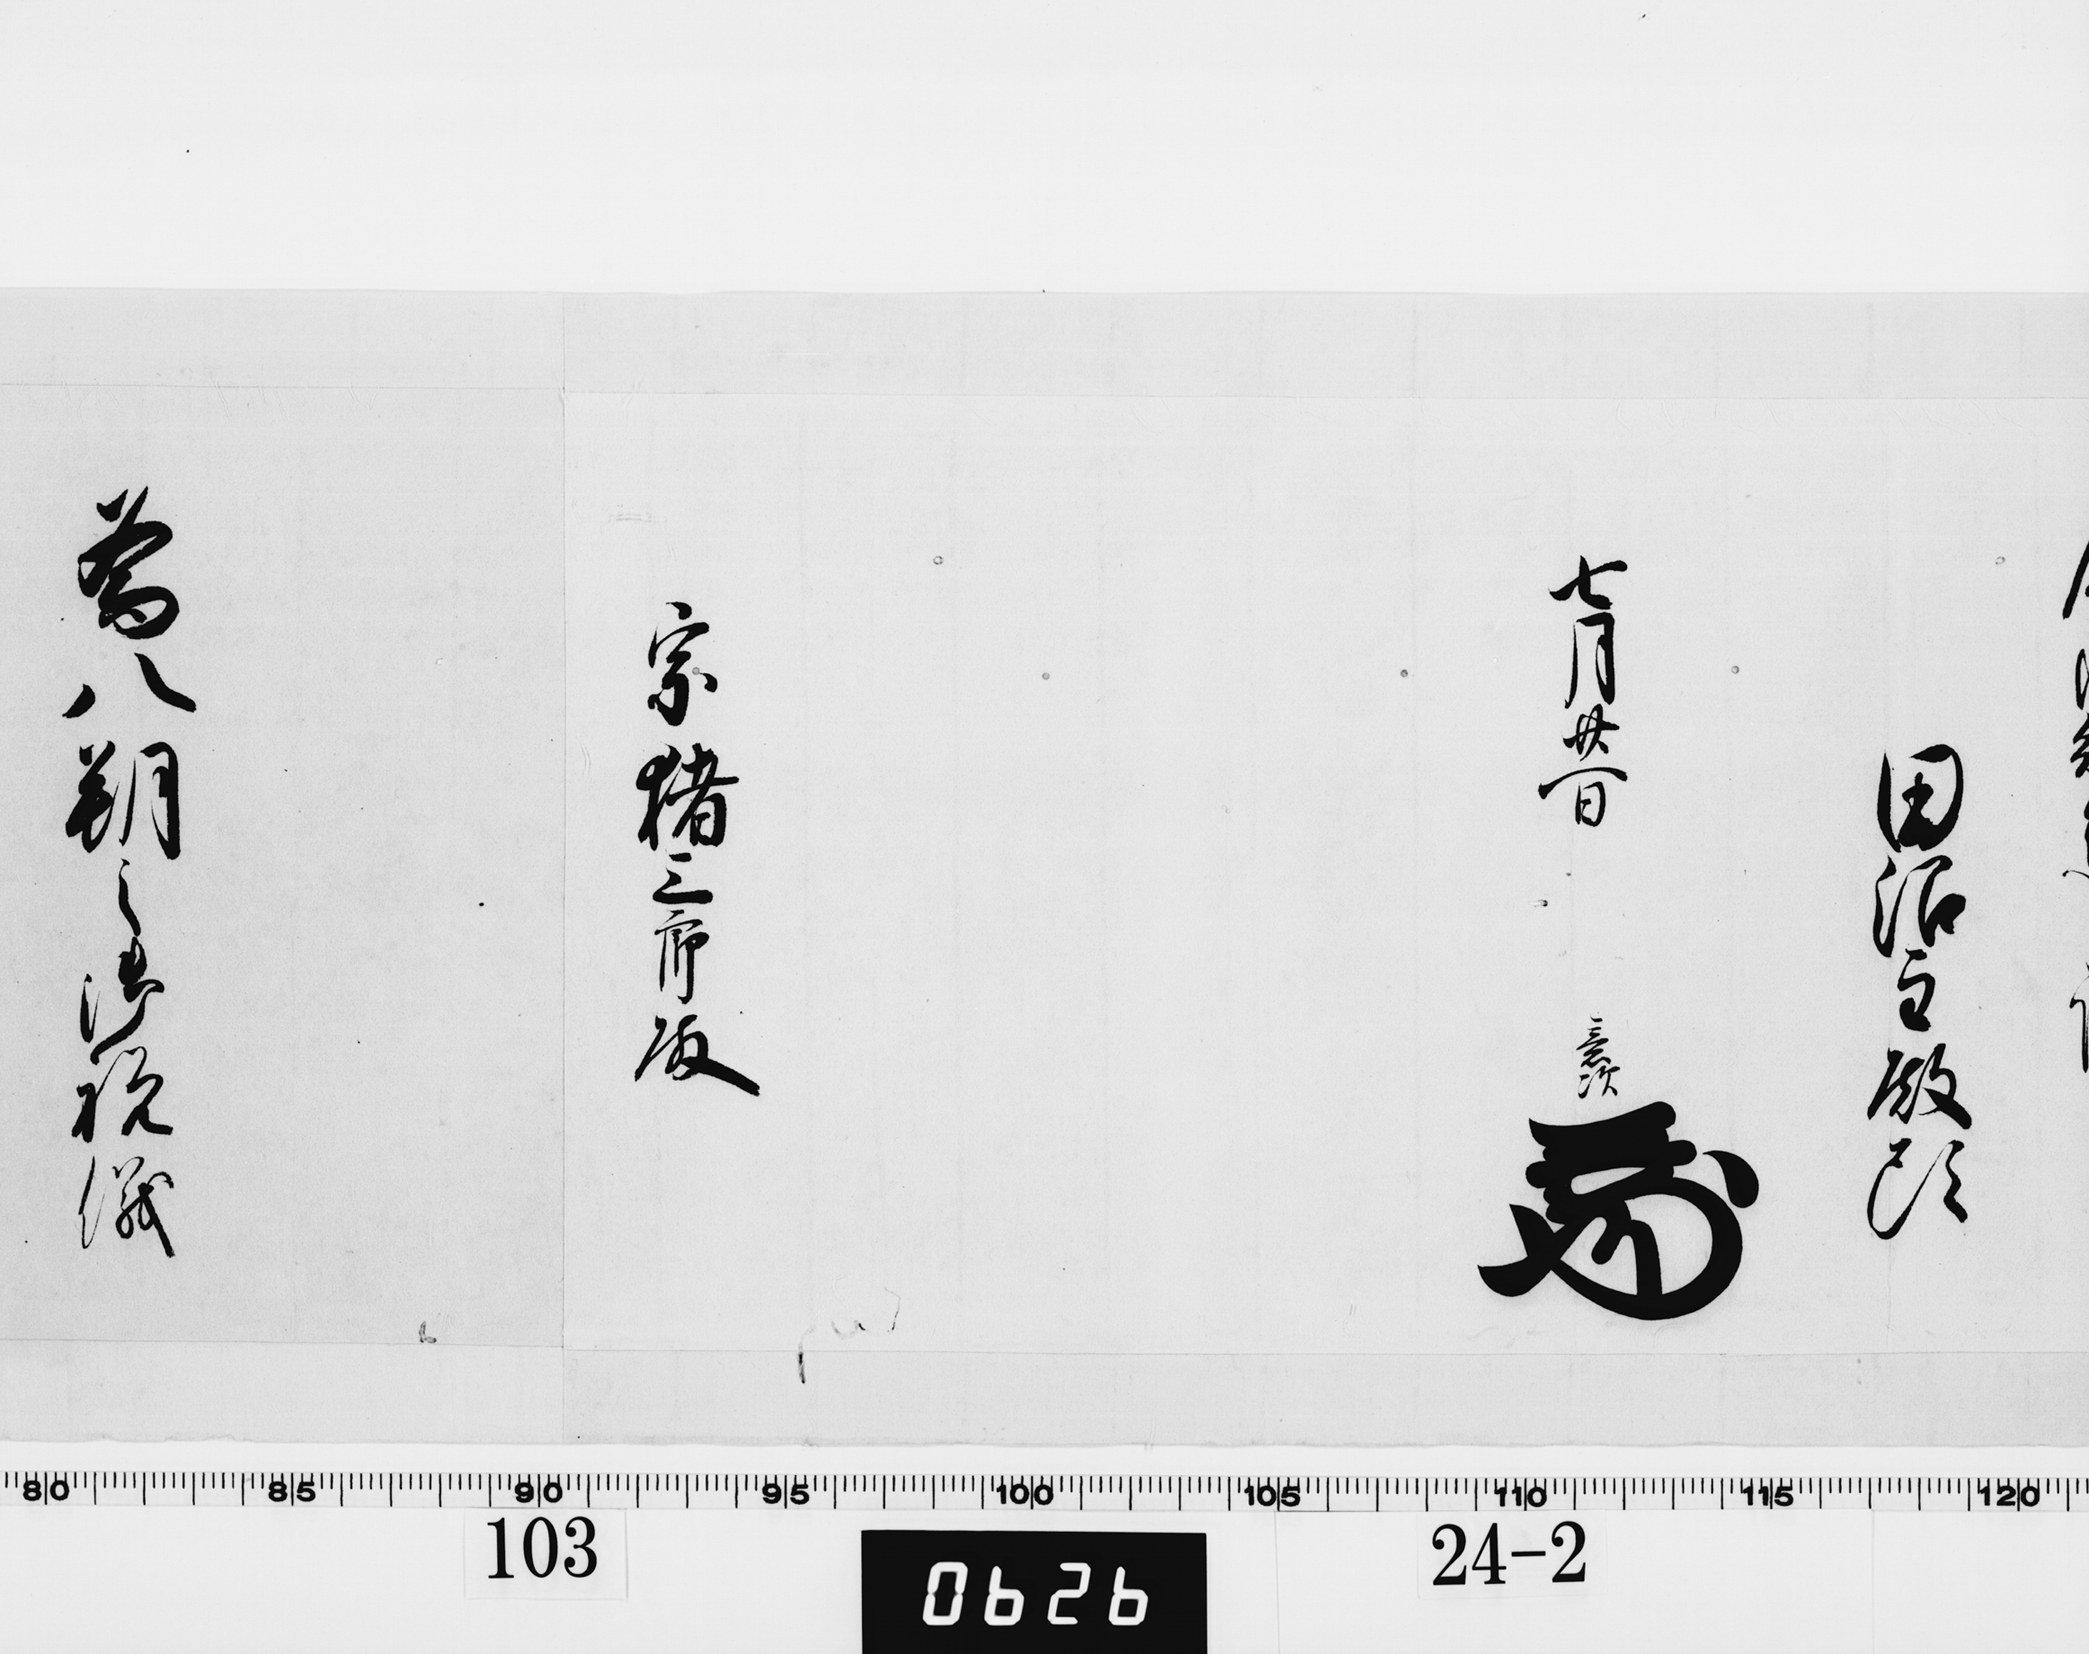 田沼主殿頭
七月廿一日
意次
宗猪三郎殿
為八朔之御祝儀
80 85 90 95 100 105 110 115 120
103
0626
24-2